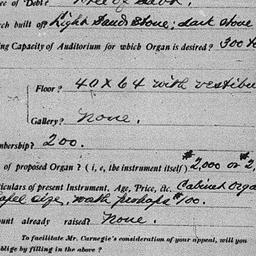 of Debt? Free of Debt.
built of? Light Sand Stone; dark stone
Capacity of Auditorium for which Organ is desired? 300 to
Floor? 40 x 64 with vestibu
Gallery? None.
mbership? 200.
of proposed Organ? (i, e, the instrument itself) $2,000 or $2,
ticulars of present Instrument, Age, Price, etc. Cabinet Orga
apel size, worth perhaps $100.
ount already raised? None.
To facilitate Mr. Carnegie's consideration of your appeal, will you
oblige by filling in the above?